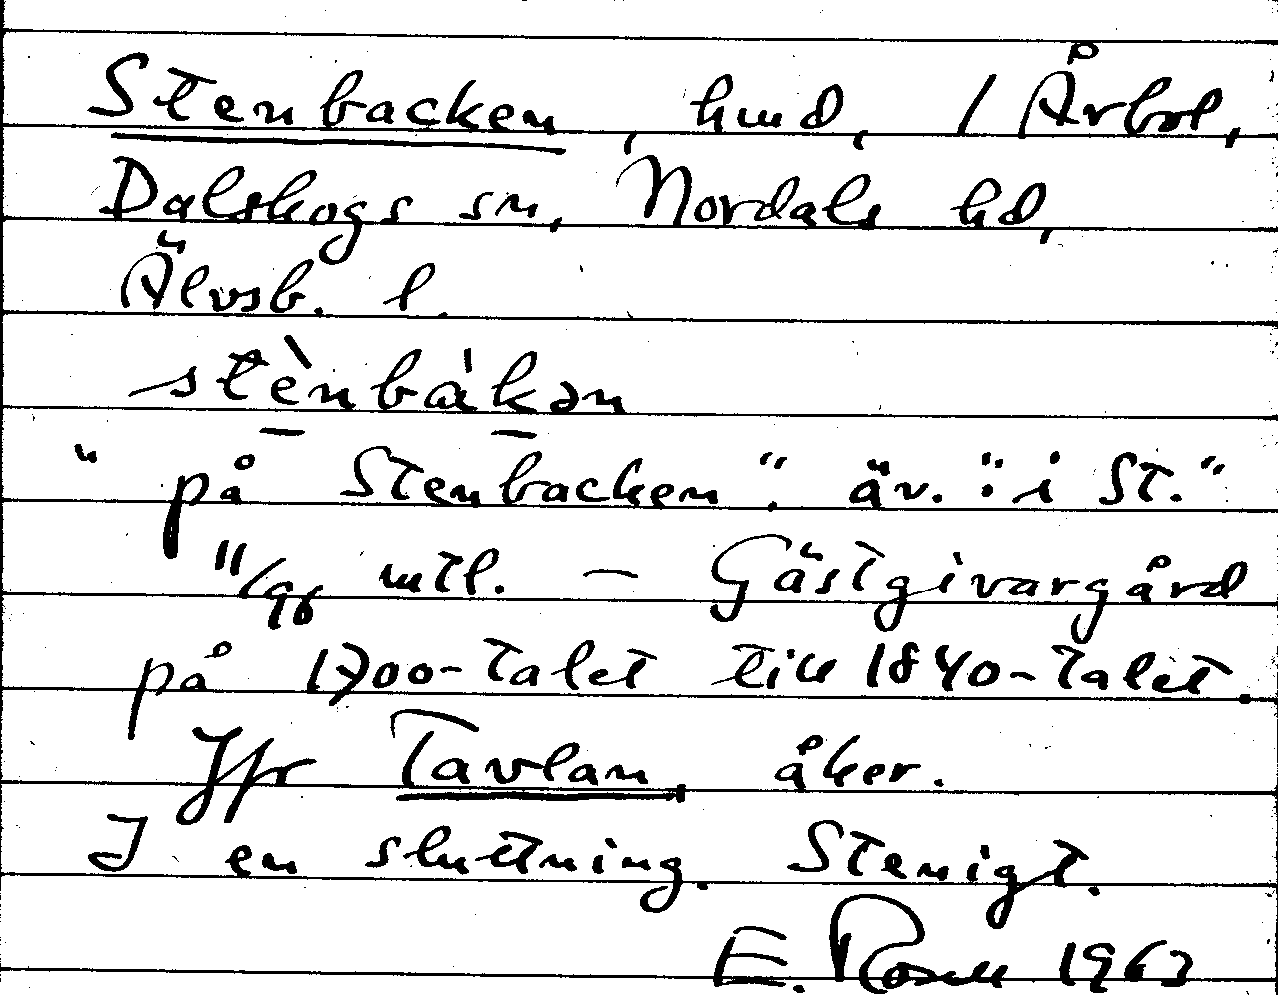 Stenbacken, hmd, / Årbol,
Dalskogs sn, Nordals hd,
Älvsb. l.
stènbàkən
"på Stenbacken", äv. "i St."
11/96 mtl. – Gästgivargård
på 1700-talet till 1840-talet.
Jfr Tavlan, åker.
I en sluttning. Stenigt.
E. Rosell 1963